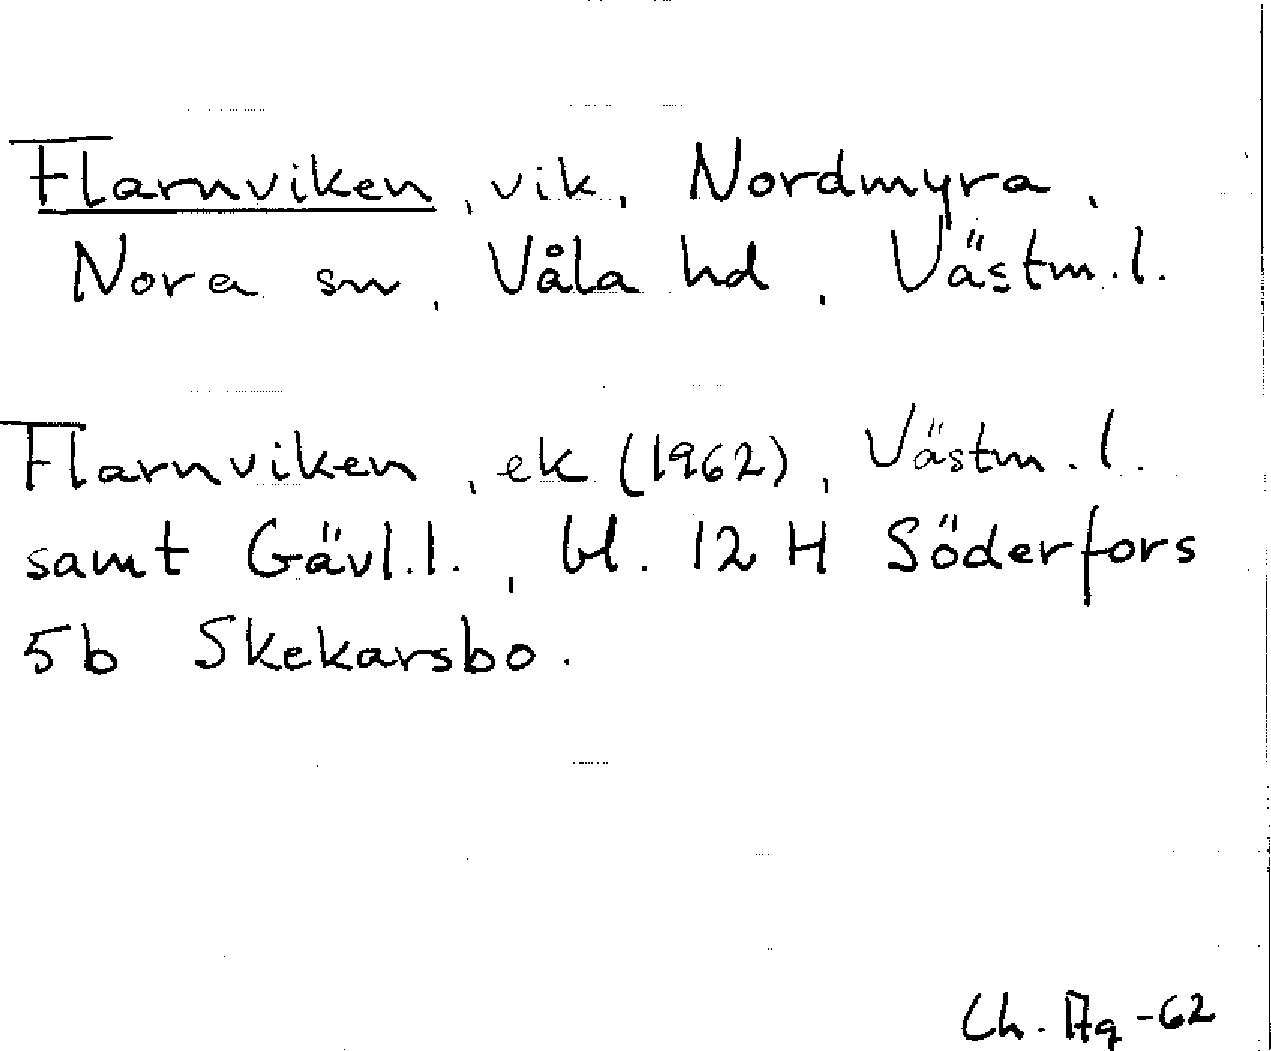 Flarnviken, vik, Nordmyra,
Nora sn, Våla hd, Västm.l.
Flarnviken, ek (1962), Västm.l.
samt Gävl.l., bl. 12 H Söderfors
5b Skekarsbo.
Ch. Ag -62